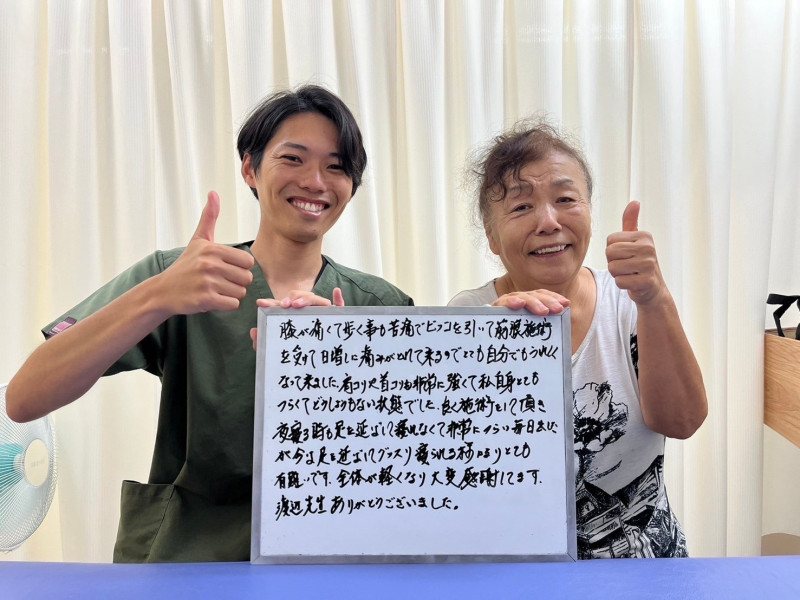 膝が痛くて歩く事も苦痛でビッコを引いて前後施術
を受けて日増しに痛みがとれて来るのでとても自分でもうれしく
なって来ました。肩コリや首コリも非常に強くて私自身とても
つらくてどうしようもない状態でした。良く施術をして頂き
夜寝る時も足を延ばして寝れなくて非常につらい毎日でした
が今は足を延ばしてグッスリ寝られる様になりとても
有難いです。全体が軽くなり大変感謝してます。
渡辺先生ありがとうございました。